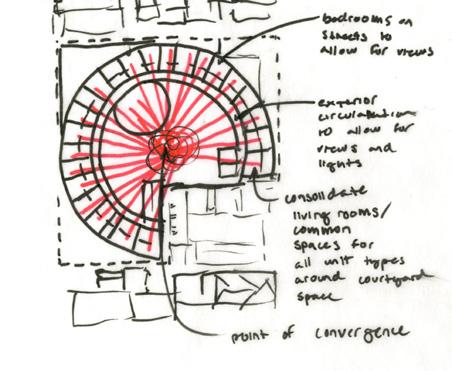 bedrooms on
streets to
allow for views
exterior
circulation
to allow for
views and
lights
consolidate
living rooms/
common
spaces for
all unit types
around courtyard
space
point of convergence